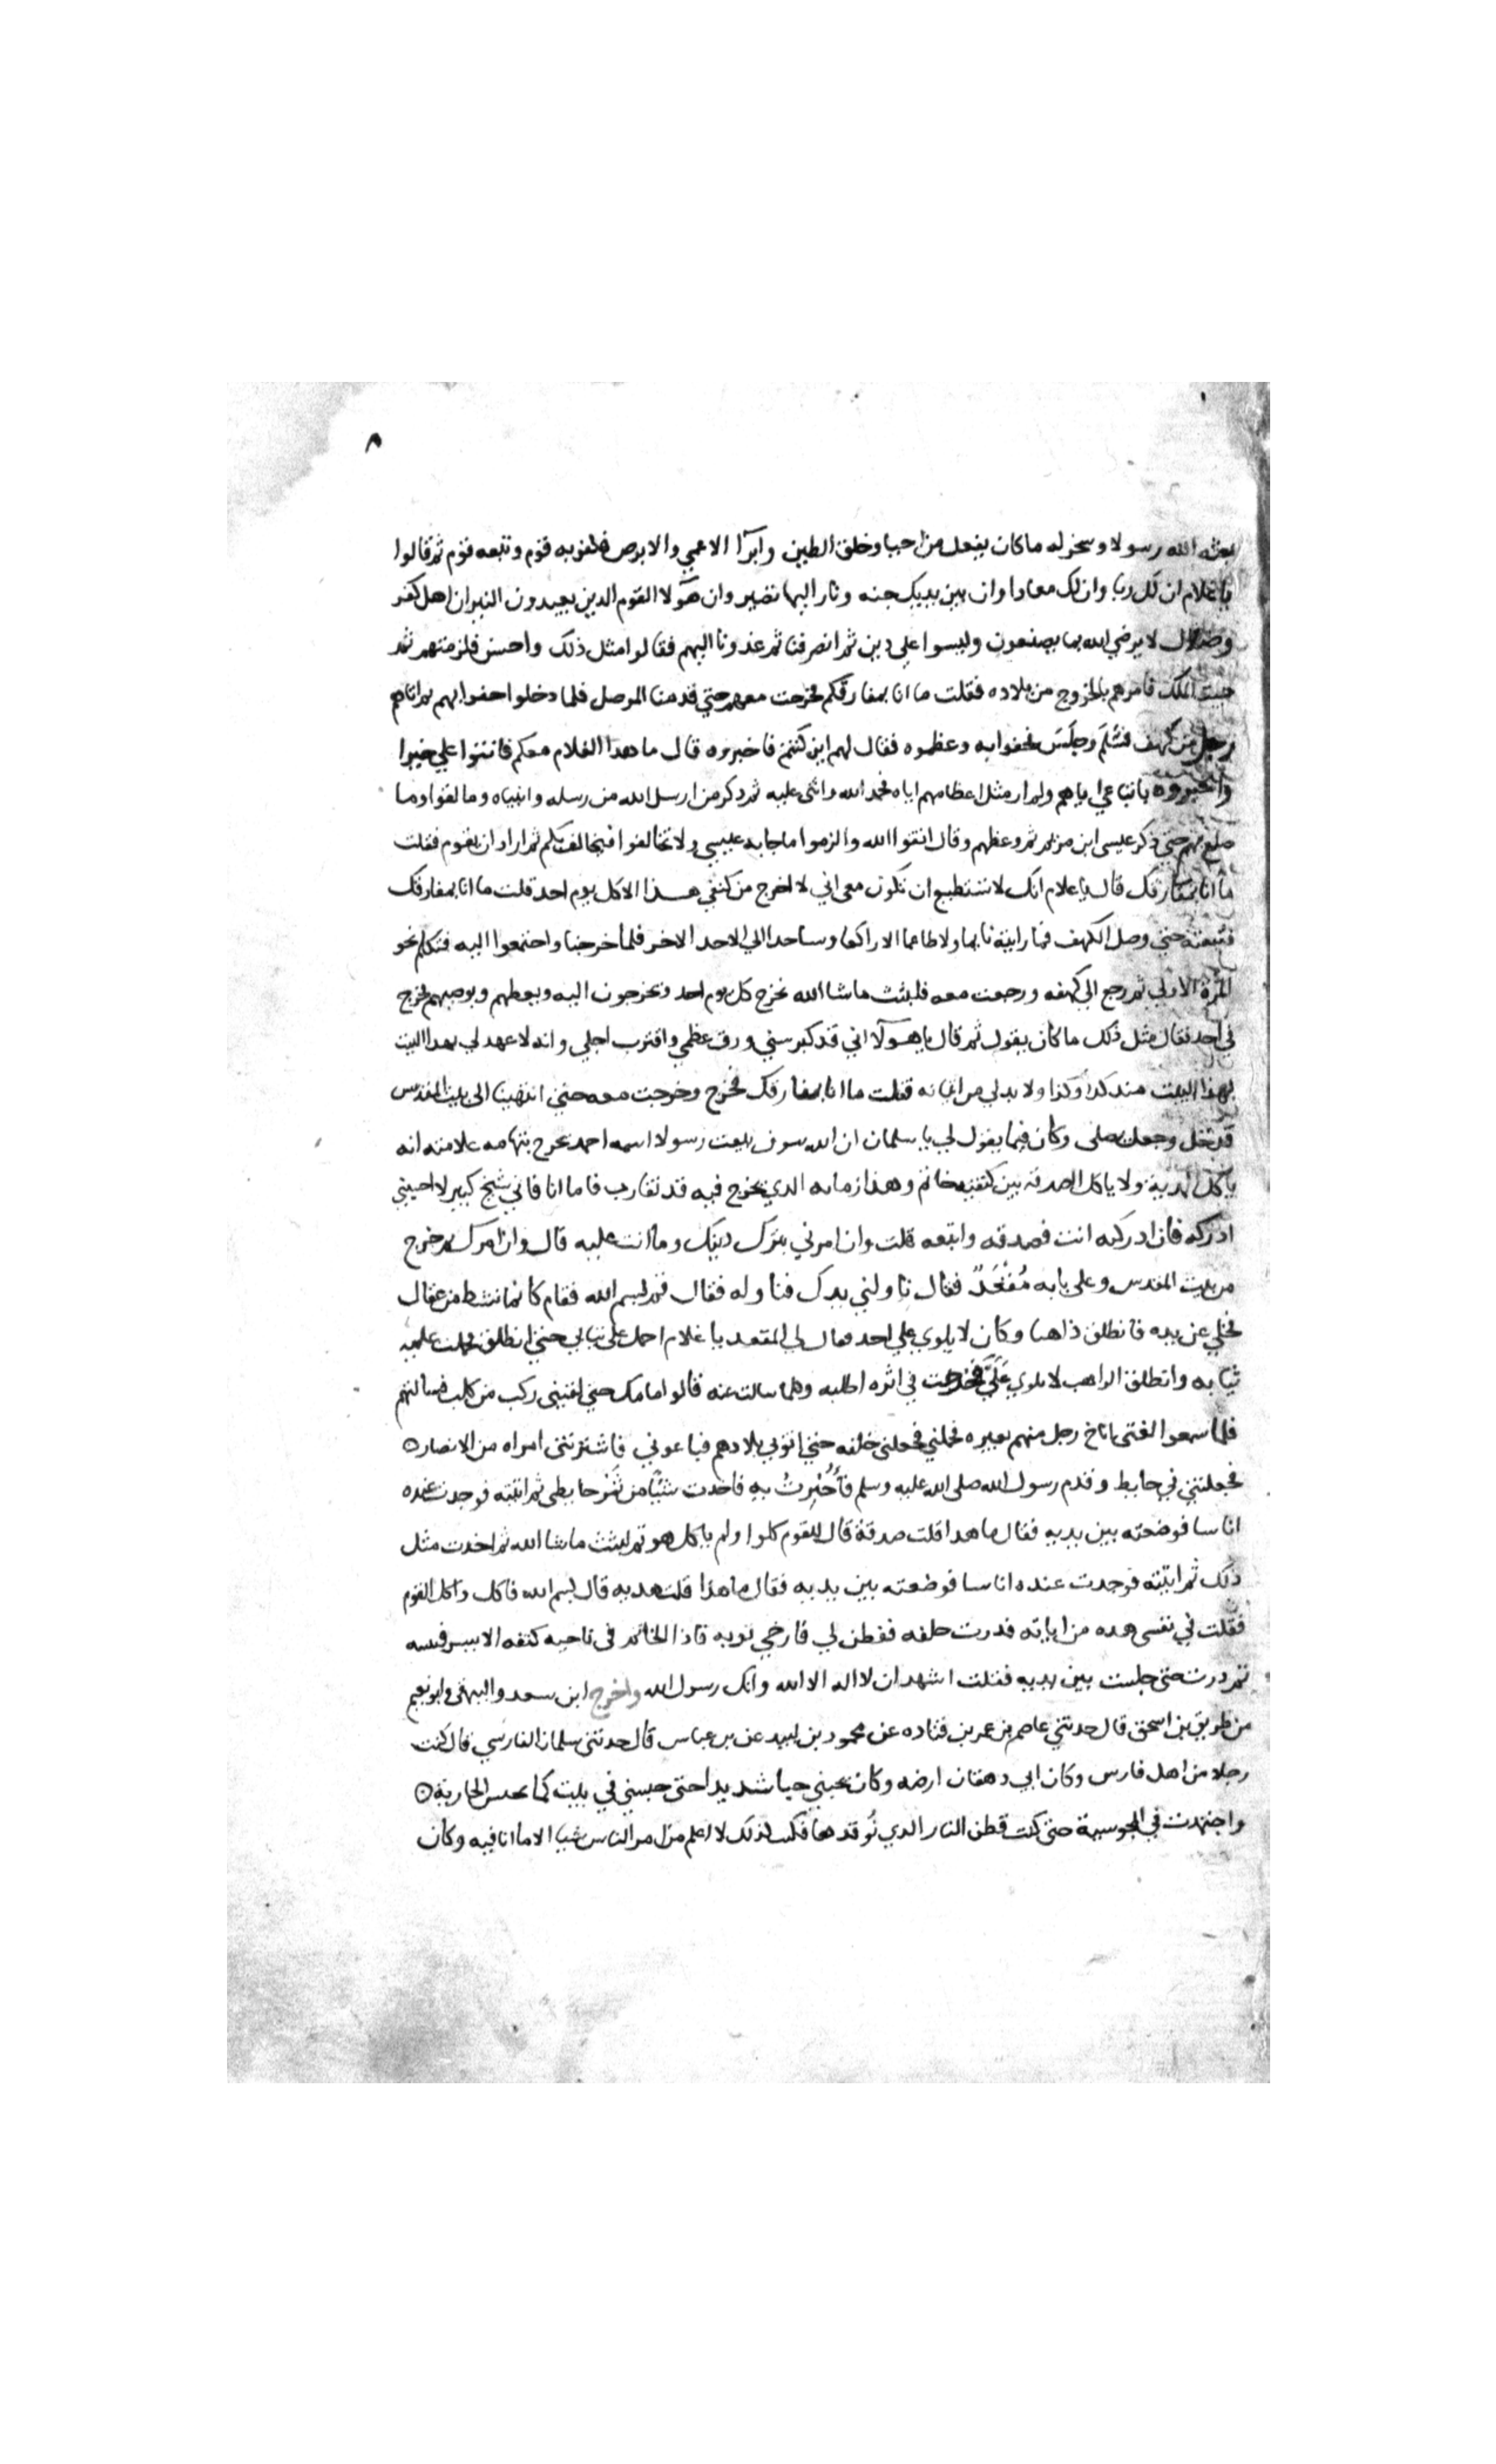 ٨
بعثه الله رسولا وسخر له ما كان يفعل من احيا وخلق الطين وابرآ الاعمي والابرص فكفر به قوم وتبعه قوم ثم قالوا
يا غلام ان لك ربا وان لك معادا وان بين يديك جنه ونار اليها تصير وان هولا القوم الدين يعبدون النيران اهل كفر
وضلال لا يرضي الله بما يصنعون وليسوا علي دين ثم انصرفنا ثم غدونا اليهم فقالوا مثل ذلك واحسن فلزمتهم ثم
الملك فامرهم بالخروج من بلاده فقلت ما انا بمفارقكم فخرجت معهم حتي قدمنا الموصل فلما دخلوا حفوا بهم ثم اتاهم
رجل من كهف فسَلم وجلَسَ فحفوا به وعظموه فقال لهم اين كنتم فاخبروه قال ما هدا الغلام معكم فاثنوا علي خيرا
واخبروه باتباعي اياهم ولم ار مثل اعظامهم اياه فحمد الله واثنى عليه ثم دكر من ارسل الله من رسله وانبياه وما لقوا وما
صنع بهم حتي ذكر عيسى ابن مريم ثم وعظهم وقال اتقوا الله والزموا ما جا به عيسي ولا تخالفوا فيخالف بكم ثم اراد ان يقوم فقلت
ما انا بمفارقك قال يا غلام انك لا تستطيع ان تكون معى اني لا اخرج من كهفي هذا الا كل يوم احد قلت ما انا بمفارقك
فتبعته حتي وصل الكهف فما رايته نايما ولا طاعما الا راكعا وساجدا الي الاحد الاخر فلما خرجنا واجتمعوا اليه فتكلم نحو
المرة الاولي ثم رجع الي كهفه ورجعت معه فلبثت ماشا الله نخرج كل يوم احد ويخرجون اليه ويعظهم ويوصيهم فخرج
في احد فقال مثل ذلك ما كان يقول ثم قال يا هولآ اني قد كبر سني ورق عظمي واقترب اجلي وانه لا عهد لي بهدا البيت
بهذا البيت منذ كدا وكذا ولا بد لي من اتيانه فقلت ما انا بمفارقك فخرج وخرجت معه حتي انتهينا الى بيت المقدس
فدخل وجعل يصلى وكان فيما يقول لي يا سلمان ان الله سوف يبعث رسولا اسمه احمد يخرج بتهامه علامته انه
ياكل الهدية ولا ياكل الصدقه بين كتفيه خاتم وهذا زمانه الدي يخرج فيه قد تقارب فاما انا فاني شيخ كبير لا احسبني
ادركه فان ادركته انت فصدقه واتبعه قلت وان امرني بترك دينك وما انت عليه قال وان امرك ثم خرج
من بيت المقدس وعلى بابه مُقْعَدٌ فقال ناولني يدك فناوله فقال قم بسم الله فقام كانما نشط من عقال
فخلي عن يده فانطلق ذاهبا وكان لا يلوي علي احد فقال لي المقعد يا غلام احمل علي ثيابي حتي انطلق فحملت عليه
ثيابه وانطلق الراهب لا يلوي عَلَيَّ فخرجت في اثره اطلبه وكلما سالت عنه قالوا امامك حتي لقيني ركب من كلب فسالتهم
فلما سمعوا الفتى اناخ رجل منهم بعيره فحملني فجعلنى خلفه حتي اتوابي بلادهم فباعوني فاشترتنى امراه من الانصار ه
فجعلتني في حايط وقدم رسول الله صلى الله عليه وسلم فَأُخْبِرتُ بِهِ فاخدت شيًا من ثَمَر حايطى ثم اتيته فوجدت عنده
اناسا فوضعته بين يديه فقال ما هدا قلت صدقة قال للقوم كلوا ولم ياكل هو ثم لبثت ماشا الله ثم اخدت مثل
ذلك ثم اتيته فوجدت عنده اناسا فوضعته بين يديه فقال ما هذا قلت هديه قال بسم الله فاكل واكل القوم
فقلت في نفسي هده من اياته فدرت خلفه ففطن لي فارخي ثوبه فاذا الخاتم فى ناحيه كتفه الايسر فتبينته
ثم درت حتى جلست بين يديه فقلت اشهد ان لا اله الا الله وانك رسول الله واخرج ابن سعد والبيهقى وابو نعيم
من طريق بن اسحق قال حدثني عاصم بن عمر بن قتاده عن محمود بن لبيد عن بن عباس قال حدثنى سلمان الفارسي قال كنت
رجلا من اهل فارس وكان ابي دهقان ارضه وكان يحبني حبا شديدا حتى حبسني في بيت كما تحبس الجارية ه
واجتهدت في المجوسية حتى كنت قطن النار الدي نُوقدها فكنت لذلك لا اعلم من امر الناس شيا الا ما انا فيه وكان